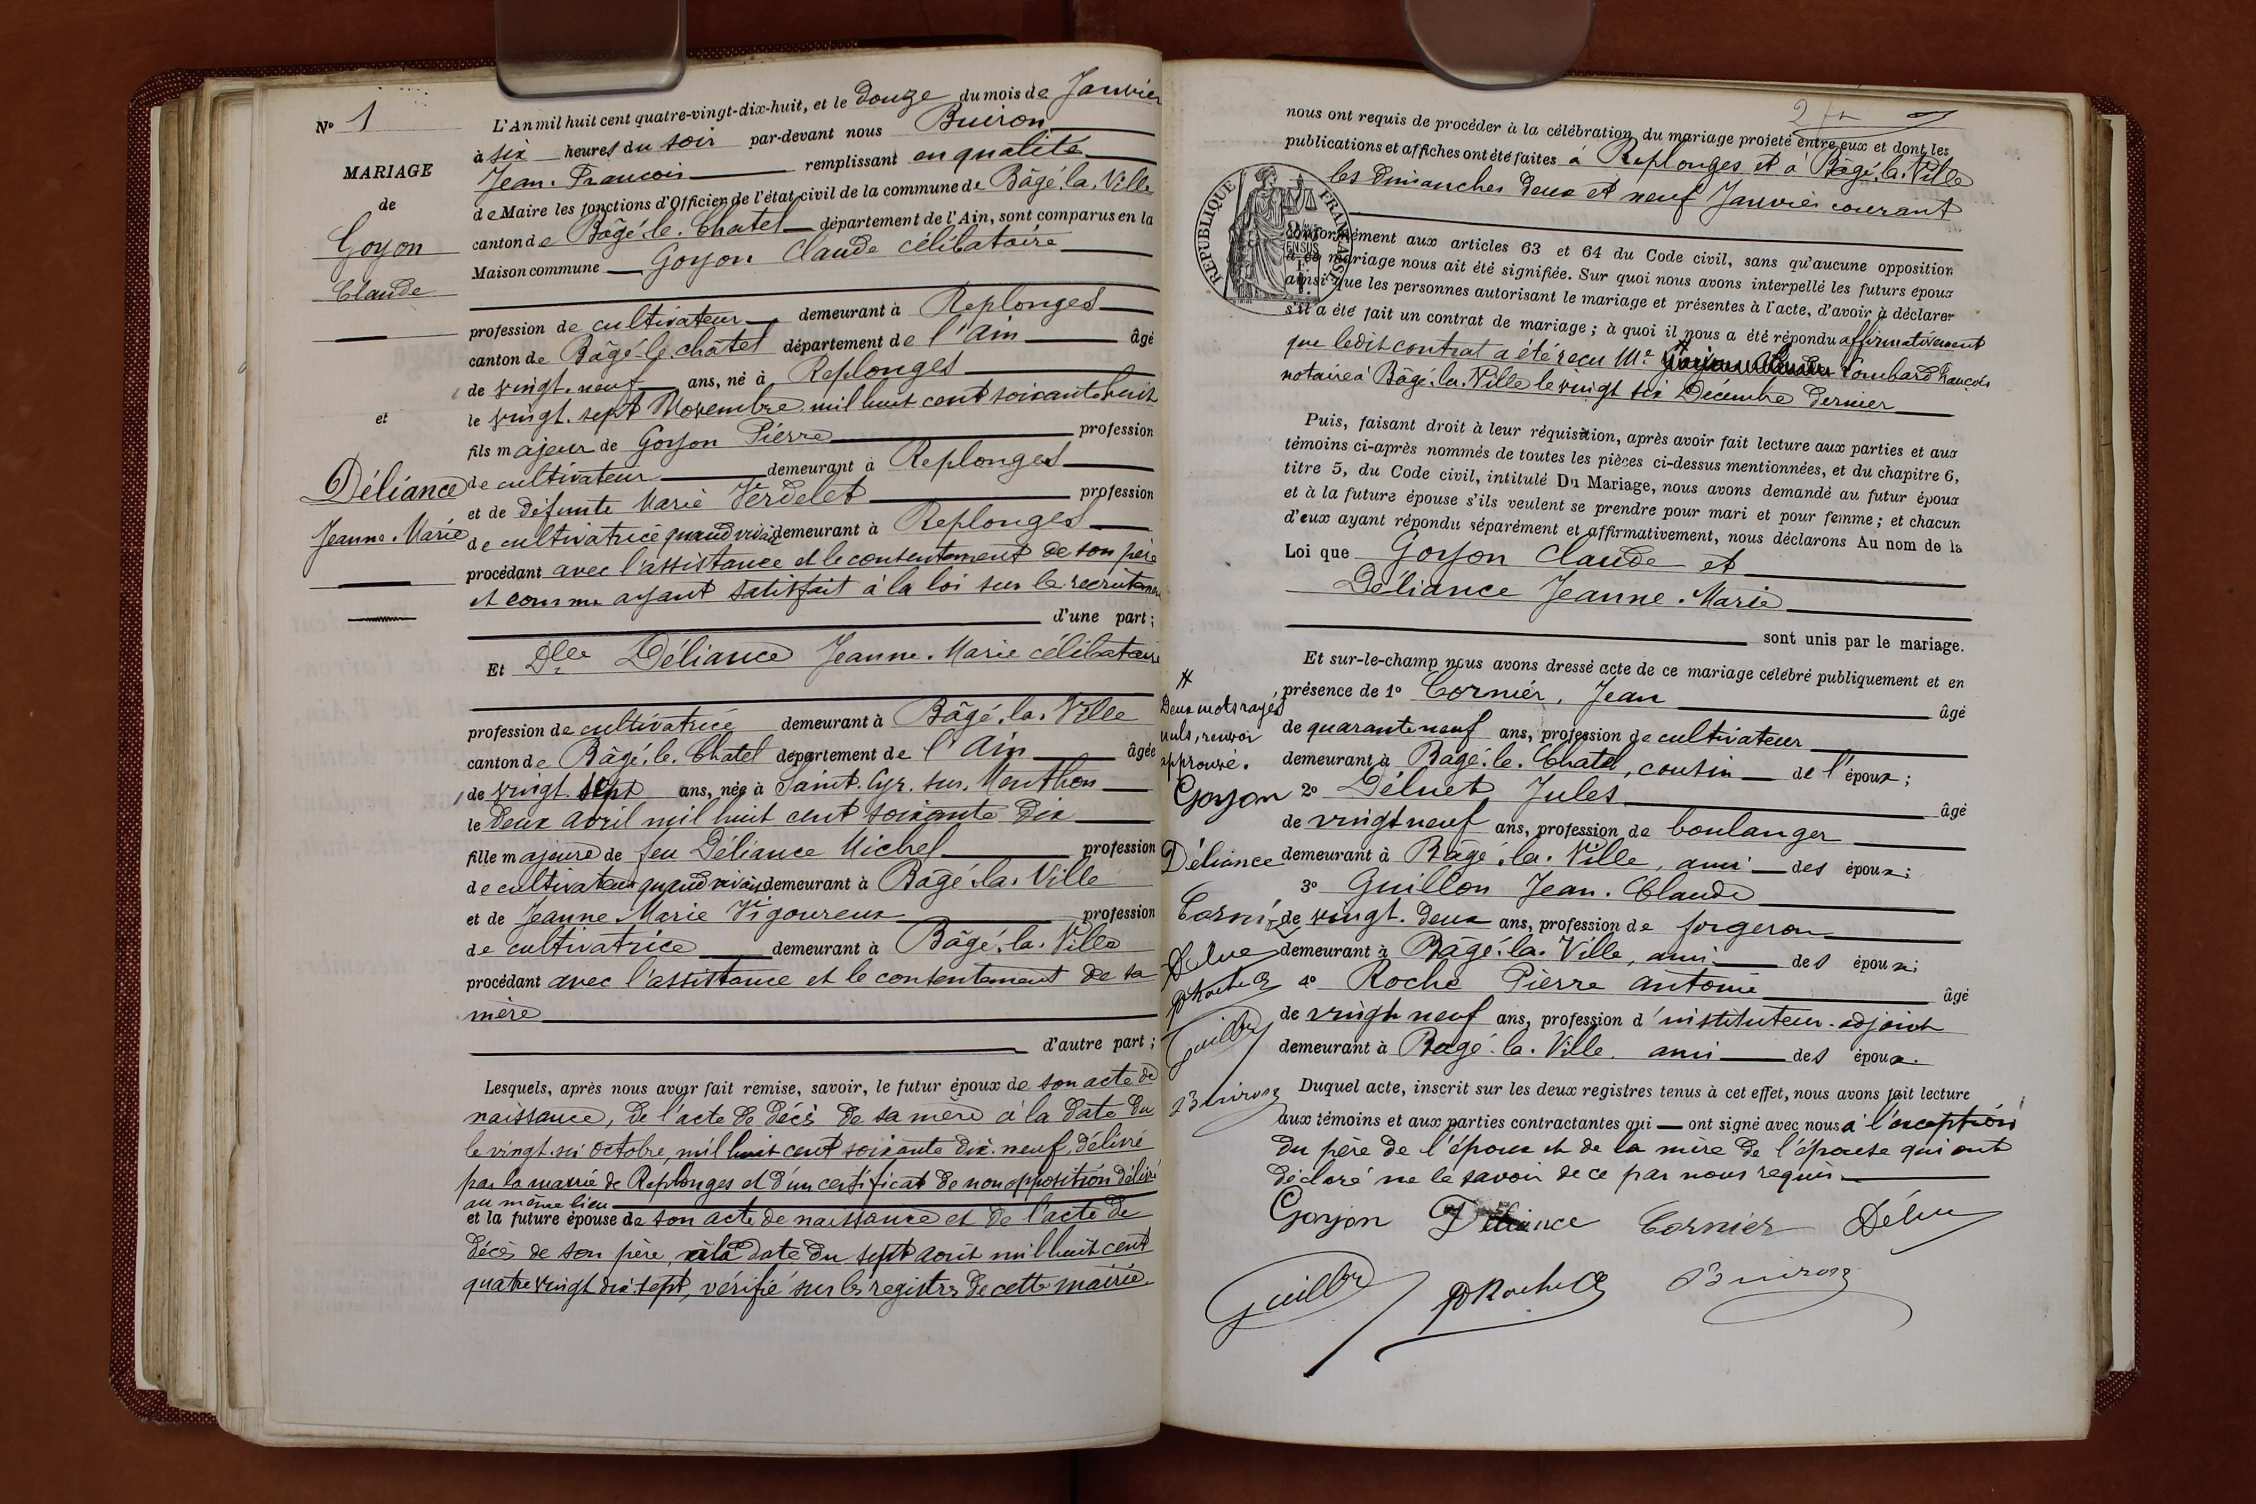 N° 1
MARIAGE
de
Goyon
Claude
et
Déliance
Jeanne. Marie
L'An mil huit cent quatre-vingt-dix-huit, et le douze du mois de Janvier
à six heures du soir par-devant nous Buiron
Jean. Francois remplissant en qualité
de Maire les fonctions d'Officier de l'état civil de la commune de Bâgé. la. Ville
canton de Bâgé. le. Chatel département de l'Ain, sont comparus en la
Maison commune Goyon Claude célibataire
profession de cultivateur demeurant à Replonges
canton de Bâgé-le-châtel département de l'Ain âgé
de vingt. neuf ans, né à Replonges
le vingt. sept Novembre mil huit cent soixante huit
fils majeur de Goyon Pierre profession
de cultivateur demeurant à Replonges
et de défunte Marie Verdelet profession
de cultivatrice quand vivait demeurant à Replonges
procédant avec l'assistance et le consentement de son père
et comme ayant satisfait à la loi sur le recrutement
d'une part;
Et Dlle Déliance Jeanne. Marie célibataire
profession de cultivatrice demeurant à Bâgé. la. Ville
canton de Bâgé. le. Chatel département de l'Ain âgée
de vingt. sept ans, née à Saint. Cyr. sur. Menthon
le deux avril mil huit cent soixante dix
fille majeure de feu Déliance Michel profession
de cultivateur quand vivait demeurant à Bâgé. la. Ville
et de Jeanne. Marie Vigoureux profession
de cultivatrice demeurant à Bâgé. la. Ville
procédant avec l'assistance et le consentement de sa
mère
d'autre part;
Lesquels, après nous avoir fait remise, savoir, le futur époux de son acte de
naissance, de l'acte de décès de sa mère à la date du
le vingt. six octobre, mil huit cent soixante dix. neuf, délivré
par la mairie de Replonges et d'un certificat de non opposition délivré
au même lieu
et la future épouse de son acte de naissance et de l'acte de
décès de son père, à la date du sept août mil huit cent
quatre vingt dix. sept, vérifié sur les registres de cette mairie.
nous ont requis de procéder à la célébration du mariage projeté entre eux et dont les
publications et affiches ont été faites à Replonges et à Bâgé. la. Ville
les dimanches deux et neuf Janvier courant
RÉPUBLIQUE FRANÇAISE
conformément aux articles 63 et 64 du Code civil, sans qu'aucune opposition
à ce mariage nous ait été signifiée. Sur quoi nous avons interpellé les futurs époux
ainsi que les personnes autorisant le mariage et présentes à l'acte, d'avoir à déclarer
s'il a été fait un contrat de mariage; à quoi il nous a été répondu affirmativement
que ledit contrat a été reçu Me Lombard François
notaire à Bâgé. la. Ville le vingt six Décembre dernier
Puis, faisant droit à leur réquisition, après avoir fait lecture aux parties et aux
témoins ci-après nommés de toutes les pièces ci-dessus mentionnées, et du chapitre 6,
titre 5, du Code civil, intitulé Du Mariage, nous avons demandé au futur époux
et à la future épouse s'ils veulent se prendre pour mari et pour femme; et chacun
d'eux ayant répondu séparément et affirmativement, nous déclarons Au nom de la
Loi que Goyon Claude et
Déliance Jeanne. Marie
sont unis par le mariage.
Et sur-le-champ nous avons dressé acte de ce mariage célébré publiquement et en
présence de 1° Cornier, Jean âgé
de quarante neuf ans, profession de cultivateur
demeurant à Bâgé. le. Chatel, cousin de l'époux;
2° Déluet Jules âgé
de vingt neuf ans, profession de boulanger
demeurant à Bâgé. la. Ville, ami des époux;
3° Guillon Jean. Claude
de vingt. deux ans, profession de forgeron
demeurant à Bâgé. la. Ville, ami des époux;
4° Roche Pierre antoine âgé
de vingt neuf ans, profession d'instituteur-adjoint
demeurant à Bagé. la. Ville. ami des époux.
Duquel acte, inscrit sur les deux registres tenus à cet effet, nous avons fait lecture
aux témoins et aux parties contractantes qui ont signé avec nous à l'exception
du père de l'époux et de la mère de l'épouse qui ont
déclaré ne le savoir de ce par nous requis.
Goyon Déliance Cornier Délue
Guillon PRoche Buiron
Deux mots rayés
nuls, renvoi
approuvé.
Goyon
Déliance
Cornier
Delue
PRoche
Guillon
Buiron